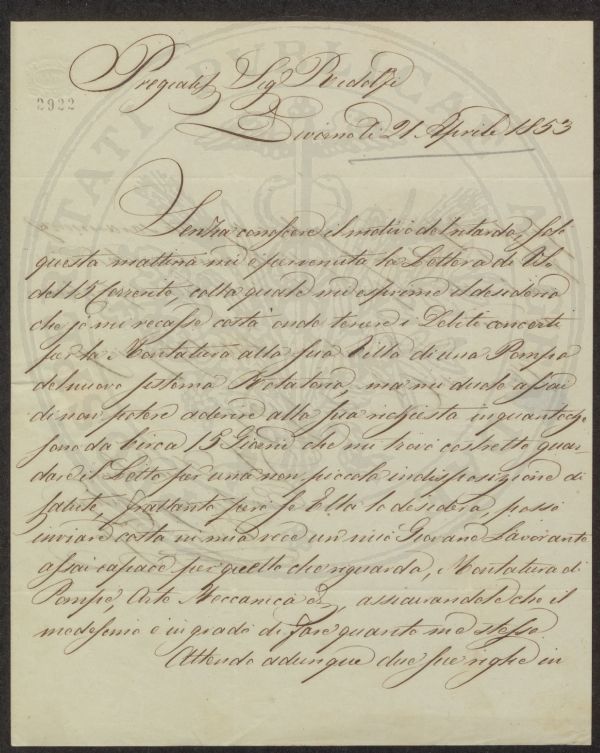 2922
Pregiat. Sigr Ridolfi
Livorno li 21 Aprile 1853
Senza conoscere il motivo del ritardo, solo
questa mattina mi è pervenuta la Lettera di
del 15 Corrente, colla quale mi esprime il desiderio
che io mi recassi costà onde tenere i Debiti concerti
per la Montatura alla sua Villa di una Pompa
del nuovo sistema Rotatorio, ma mi duole assai
di non potere aderire alla sua richiesta inquantoche
sono da Circa 15 Giorni che mi trovo costretto guar-
dare il Letto per una non piccola indisposizione di
salute, frattanto però se Ella lo desidera, posso
inviare costà in mia vece un mio Giovane Lavorante
assai capace per quello che riguarda, Montatura di
Pompe, Arte Meccanica &, assicurandola che il
medesimo è in grado di fare quanto me stesso
Attendo adunque due sue righe in